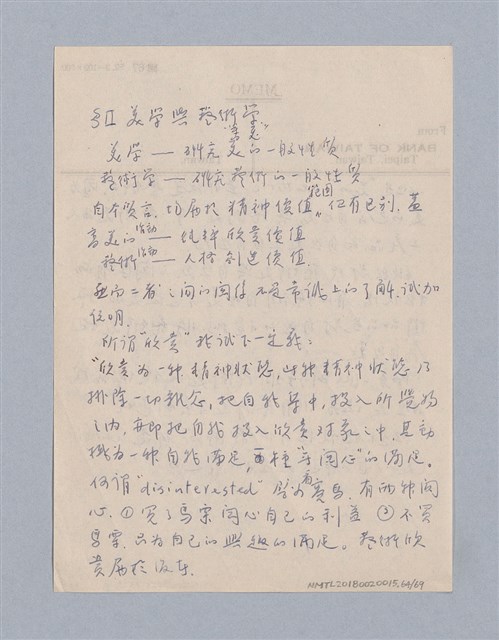 §Ⅱ 美学與藝術学
"審美"
美学 — 研究美的一般性質
藝術学 — 研究藝術的一般性質
範囲
自本質言,均屬於"精神價值",但有已别,蓋
審美的活動 — 純粹欣賞價值
藝術活動 — 人格創造價值
然而二者之间的関係不是常識上的了解,試加
說明。
所谓"欣賞"我試下一定義:
"欣賞為一种精神狀態,此种精神狀態乃
排除一切觀念,把自我集中,投入所覺物
之内,亦即把自我投入欣賞对象之中,其動
機為一种自我滿足,而種"無関心"的滿足。
何謂"disinterested"譬如看賽馬,有两种関
心,①買了馬票関心自己的利益 ②不買
馬票,只為自己的興趣的滿足。藝術欣
賞屬於後者.
NMTL20180020015,64/69
MEMO
From
BANK OF TAIWAN
Taipei, Taiwan